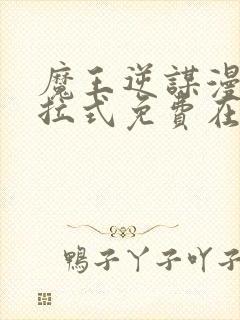 魔王逆謀漫
拉式免費在
鴨子丫子吖子